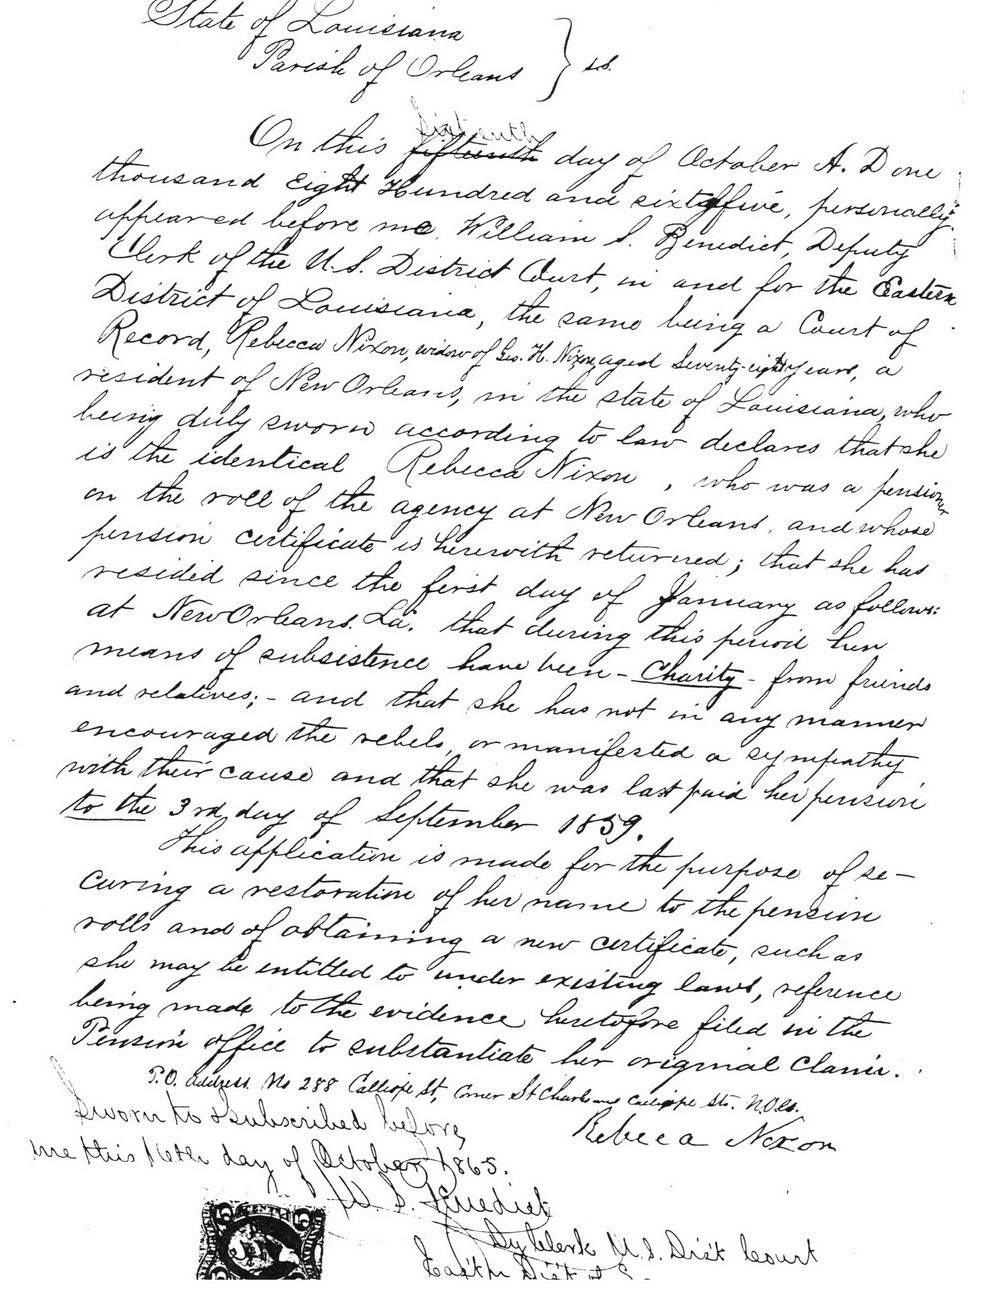 State of Louisiana
Parish of Orleans } s.s.
sixteenth
On this fifteenth day of October A. D one
thousand Eight Hundred and sixty five, personally
appeared before me William S. Benedict, Deputy
Clerk of the U.S. District Court, in and for the Eastern
District of Louisiana, the same being a Court of
Record, Rebecca Nixon, widow of Geo. H. Nixon, aged Seventy-eight years, a
resident of New Orleans, in the state of Louisiana, who
being duly sworn according to law declares that she
is the identical Rebecca Nixon, who was a pensioner
on the roll of the agency at New Orleans, and whose
pension certificate is herewith returned; that she has
resided since the first day of January as follows:
at New Orleans. La. that during this period her
means of subsistence have been - Charity - from friends
and relatives; - and that she has not in any manner
encouraged the rebels, or manifested a sympathy
with their cause and that she was last paid her pension
to the 3rd day of September 1859.
This application is made for the purpose of se-
curing a restoration of her name to the pension
rolls and of obtaining a new certificate, such as
she may be entitled to under existing laws, reference
being made to the evidence heretofore filed in the
Pension office to substantiate her original claim.
P.O. address. No 288 Calliope St, Corner St Charles and Calliope Sts. N.O. La.
Sworn to & subscribed before
me this 16th day of October 1865.
Rebecca Nixon
W. S. Benedict
Dy Clerk U.S. Dist Court
East'n Dist